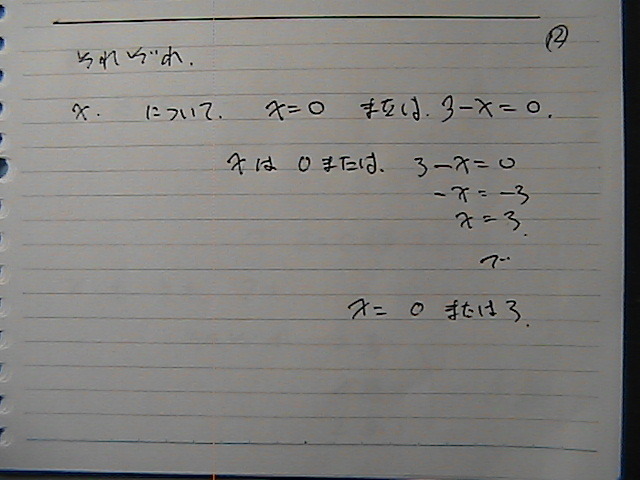 ⑫
それぞれ.
x. について. x=0 または. 3-x=0.
xは 0または. 3-x=0
-x=-3
x=3.
で
x= 0 または3.